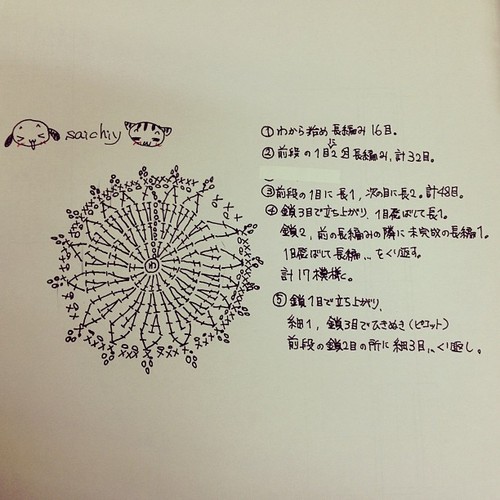 saichiy
①わから始め長編み16目。
②前段の1目に2目長編み、計32目。
③前段の1目に長1、次の目に長2。計48目。
④鎖3目で立ち上がり、1目飛ばして長1。
鎖2、前の長編みの隣に未完成の長編1。
1目飛ばして長編、、をくり返す。
計17模様に。
⑤鎖1目で立ち上がり、
細1、鎖3目でひきぬき(ピコット)
前段の鎖2目の所に細3目、、くり返し。